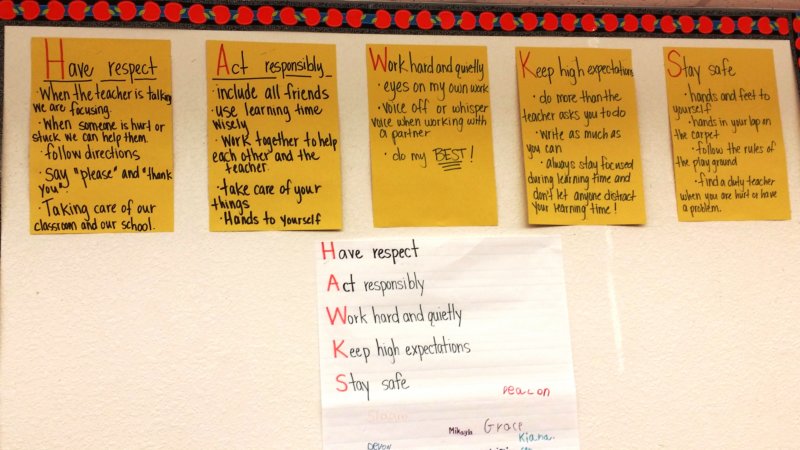 Have respect
·When the teacher is talking
we are focusing.
·When someone is hurt or
stuck we can help them.
·follow directions
·Say "please" and "thank
you"
·Taking care of our
classroom and our school.
Act responsibly
·include all friends
·use learning time
wisely
·Work together to help
each other and the
teacher.
·take care of your
things
·Hands to yourself
Work hard and quietly
·eyes on my own work
·voice off or whisper
voice when working with
a partner
·do my BEST!
Keep high expectations
·do more than the
teacher asks you to do
·write as much as
you can
·always stay focused
during learning time and
don't let anyone distract
your learning time!
Stay safe
·hands and feet to
yourself
·hands in your lap on
the carpet
·follow the rules of
the playground
·find a duty teacher
when you are hurt or have
a problem.
Have respect
Act responsibly
Work hard and quietly
Keep high expectations
Stay safe
Deacon
Mikayla Grace
Kiana
Devon